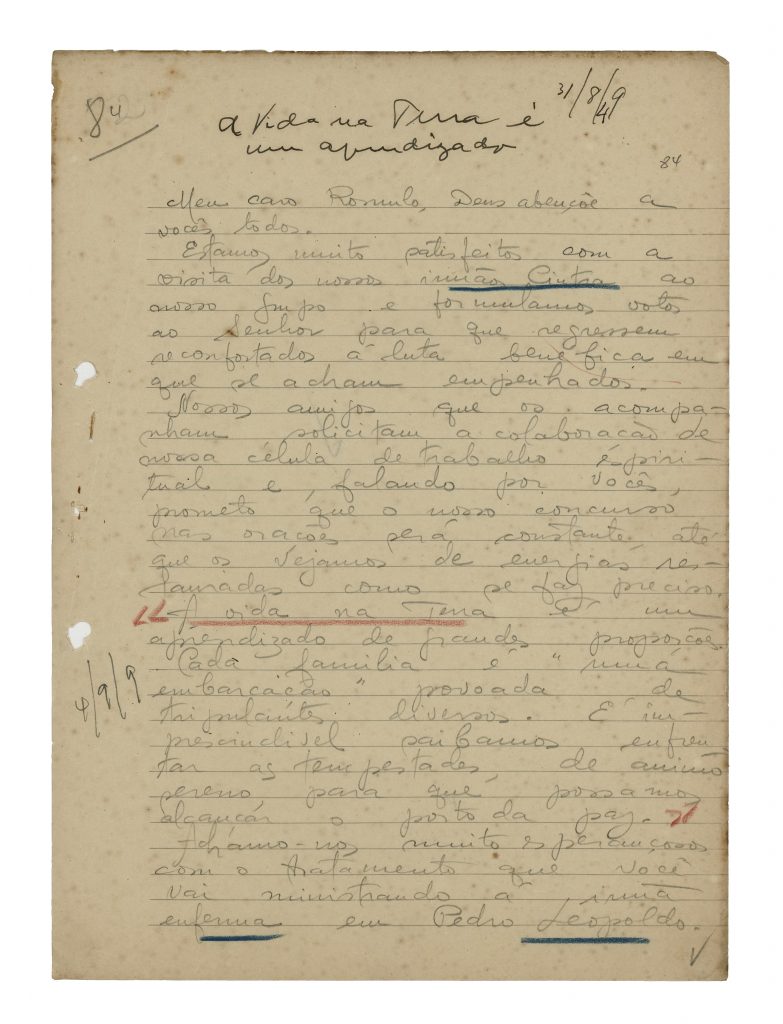 84
31/8/49
A Vida na Terra é
um aprendizado
84
Meu caro Romulo, Deus abençôe a
vocês todos.
Estamos muito satisfeitos com a
visita dos nossos irmãos Cintra ao
nosso Grupo e formulamos votos
ao Senhor para que regressem
reconfortados á luta benéfica em
que se acham empenhados.
Nossos amigos que os acompa-
nham solicitam a colaboração de
nossa célula de trabalho espiri-
tual e, falando por vocês,
prometo que o nosso concurso
nas orações será constante até
que os vejamos de energias res-
tauradas como se faz preciso.
"A vida na Terra é um
aprendizado de grandes proporções.
Cada familia é "umá
embarcação" povoada de
4/9/9
tripulantes diversos. É im-
prescindivel saibamos enfren-
tar as tempestades, de animo
sereno para que possamos
alcançar o porto da paz."
Achámo-nos muito esperançosos
com o tratamento que você
vai ministrando á irmã
enferma em Pedro Leopoldo.